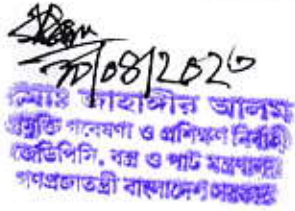 ৩০/০৪/২০২৩
মোঃ জাহাঙ্গীর আলম
প্রযুক্তি গবেষণা ও প্রশিক্ষণ নির্বাহী
জেডিপিসি, বস্ত্র ও পাট মন্ত্রণালয়
গণপ্রজাতন্ত্রী বাংলাদেশ সরকার